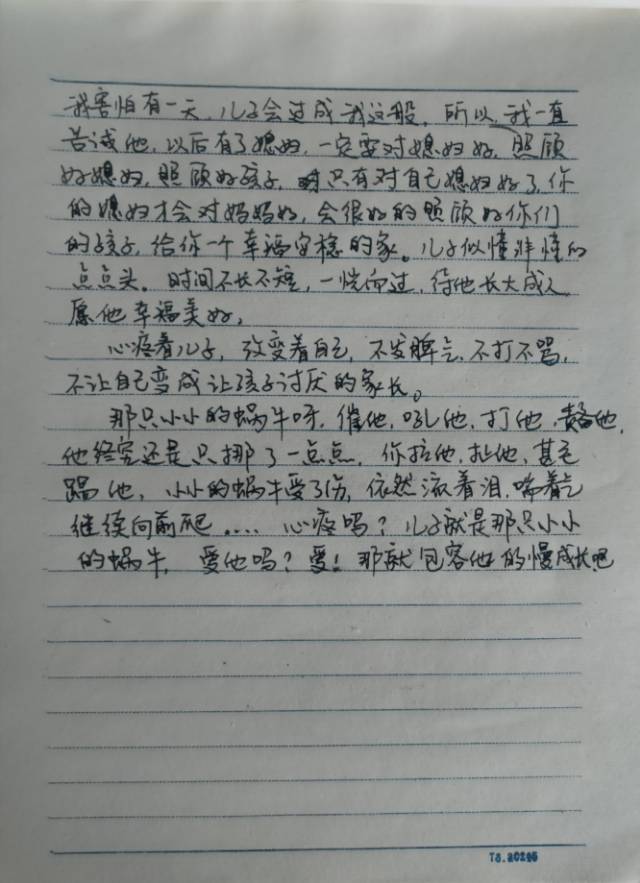 我害怕有一天,儿子会过成我这般。所以,我一直
告诫他,以后有了媳妇,一定要对媳妇好,照顾
好媳妇,照顾好孩子,只有对自己媳妇好了,你
的媳妇才会对妈妈好,会很好的照顾好你们
的孩子,给你一个幸福安稳的家。儿子似懂非懂的
点点头。时间不长不短,一恍而过,待他长大成人
愿他幸福美好。
心疼着儿子,改变着自己,不发脾气,不打不骂,
不让自己变成让孩子讨厌的家长。
那只小小的蜗牛呀,催他,吼他,打他,责备他,
他终究还是只挪了一点点,你拉他,扯他,甚至
踢他,小小的蜗牛受了伤,依然流着泪,喘着气
继续向前爬....心疼吗?儿子就是那只小小
的蜗牛,爱他吗?爱!那就包容他的慢成长吧